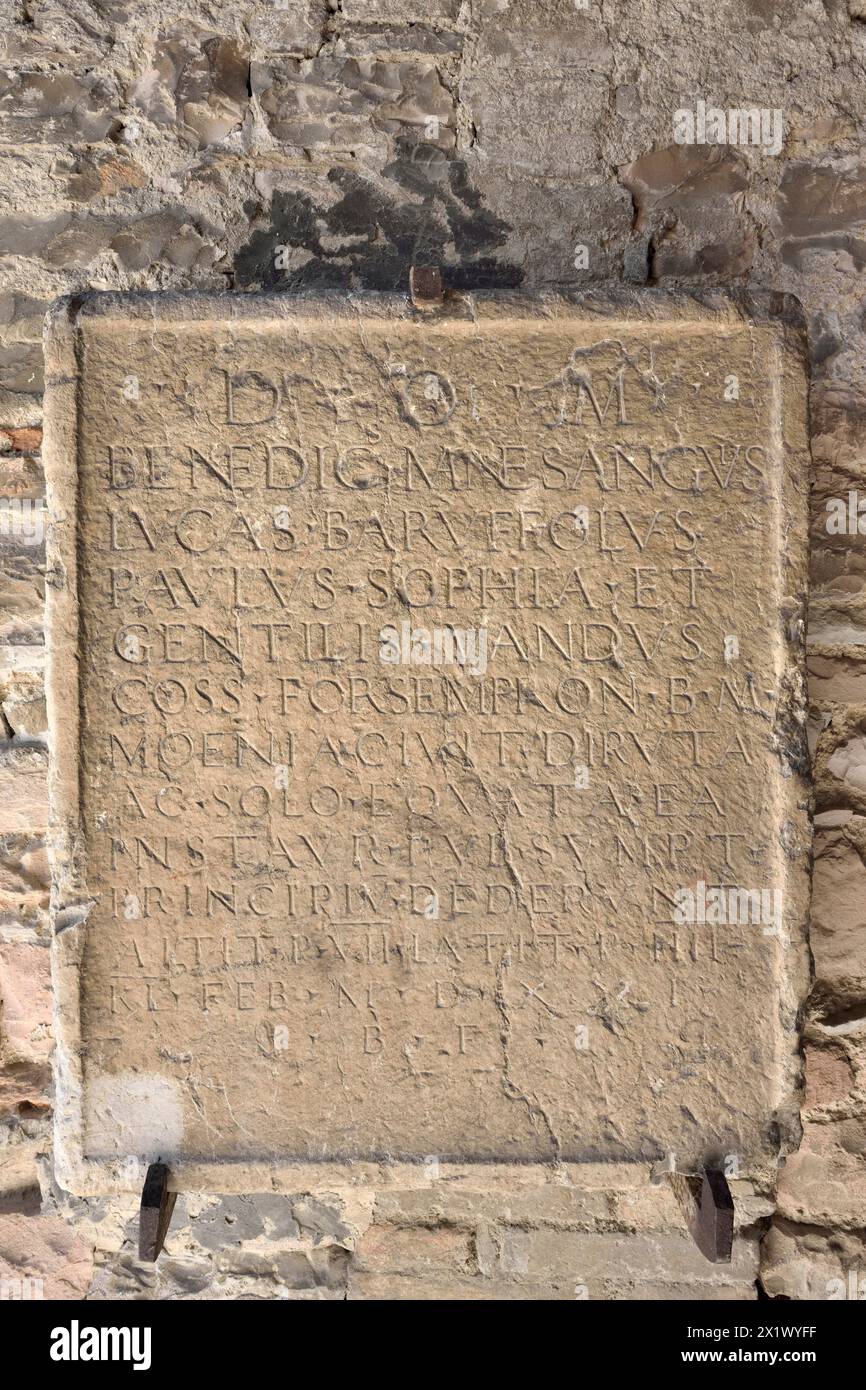 D · O · M
BENEDIC MNESANGVS
LVCAS · BARVFFOLVS
PAVLVS · SOPHIA · ET
GENTILIS · VANDVS
COSS · FORSEMPRON · B · M
MOENIA CIVIT · DIRVTA
AC · SOLO EQVATA EA
INSTAVR · PVB · SVMPT
PRINCIPIV · DEDERVNT
ALTIT · P · VII LATIT · P · IIII
KL · FEB · M · D · X X I
B · F
alamy
Image ID: 2X1WYFF
www.alamy.com